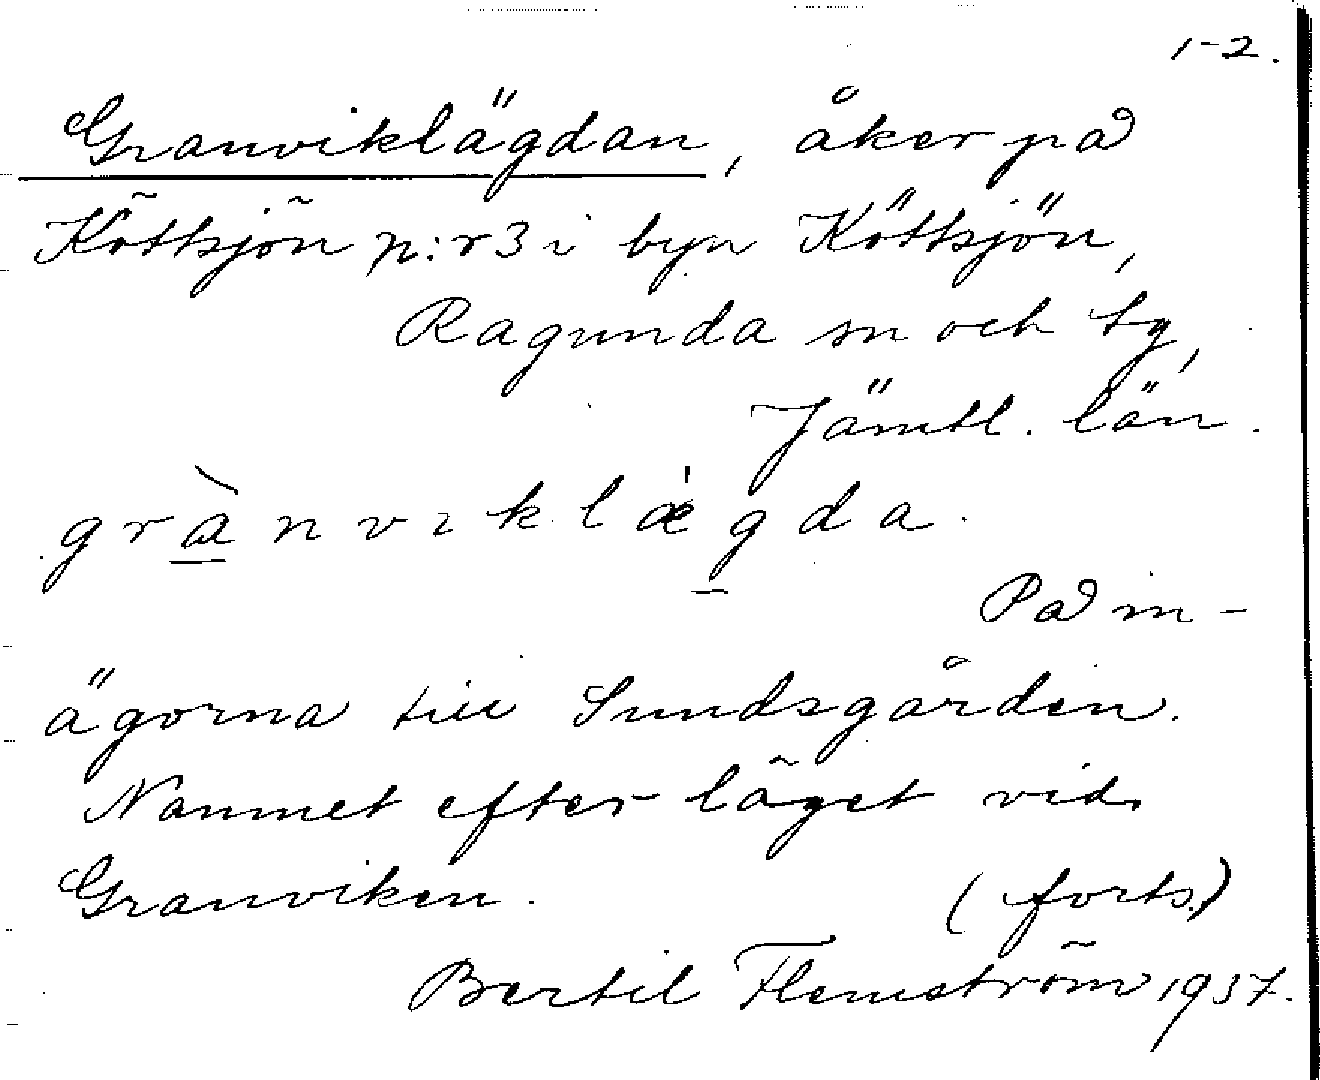 1-2.
Granviklägdan, åker på
Köttsjön n:r 3 i byn Köttsjön,
Ragunda sn och tg,
Jämtl. län.
grànvıklǽgda.
På in-
ägorna till Sundsgården.
Namnet efter läget vid
Granviken. (forts.)
Bertil Flemström 1937.